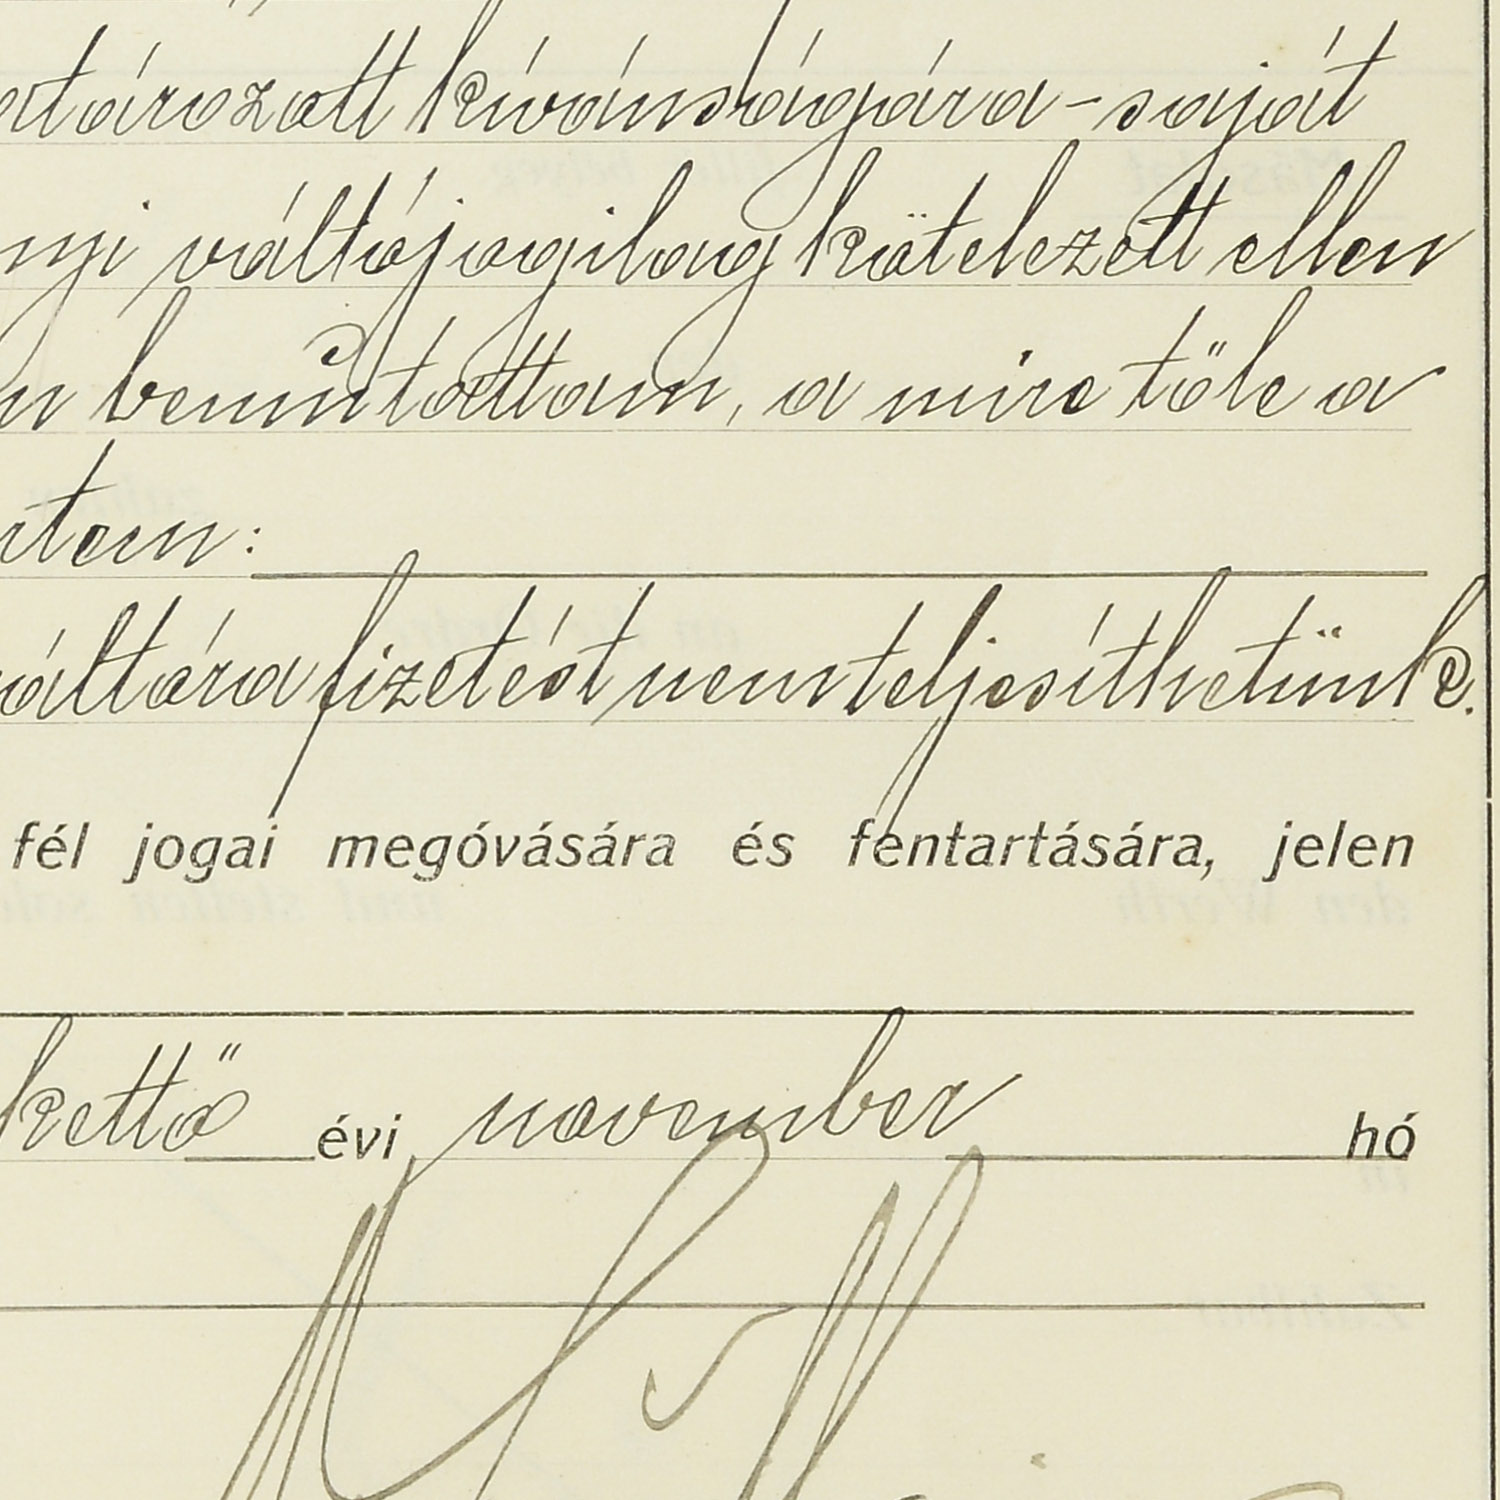 atározott kívánságára – saját
nyi váltójogilag kötelezett ellen
n bemutattam, a mire tőle a
tem:
váltóra fizetést nem teljesíthetünk.
fél jogai megóvására és fentartására, jelen
kettő évi november hó